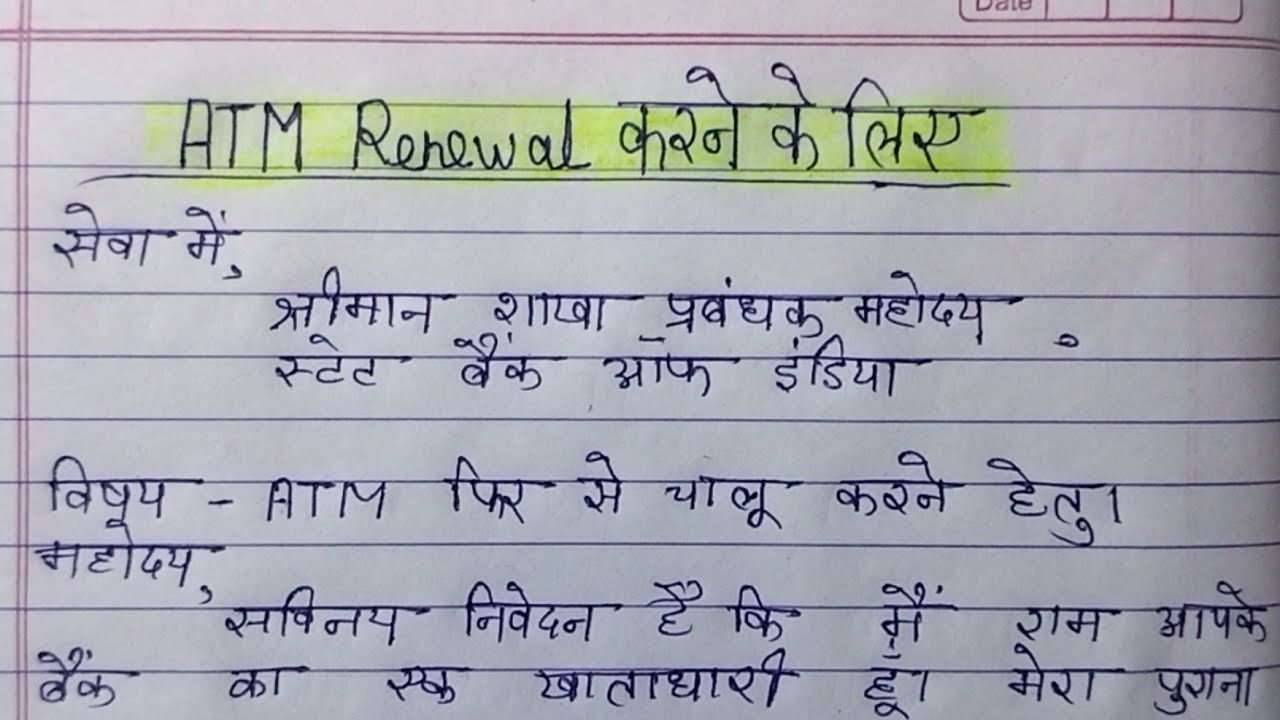 Date
ATM Renewal करने के लिए
सेवा में,
श्रीमान शाखा प्रबंधक महोदय
स्टेट बैंक ऑफ इंडिया
विषय - ATM फिर से चालू करने हेतु।
महोदय,
सविनय निवेदन है कि मैं राम आपके
बैंक का एक खाताधारी हूँ। मेरा पुराना